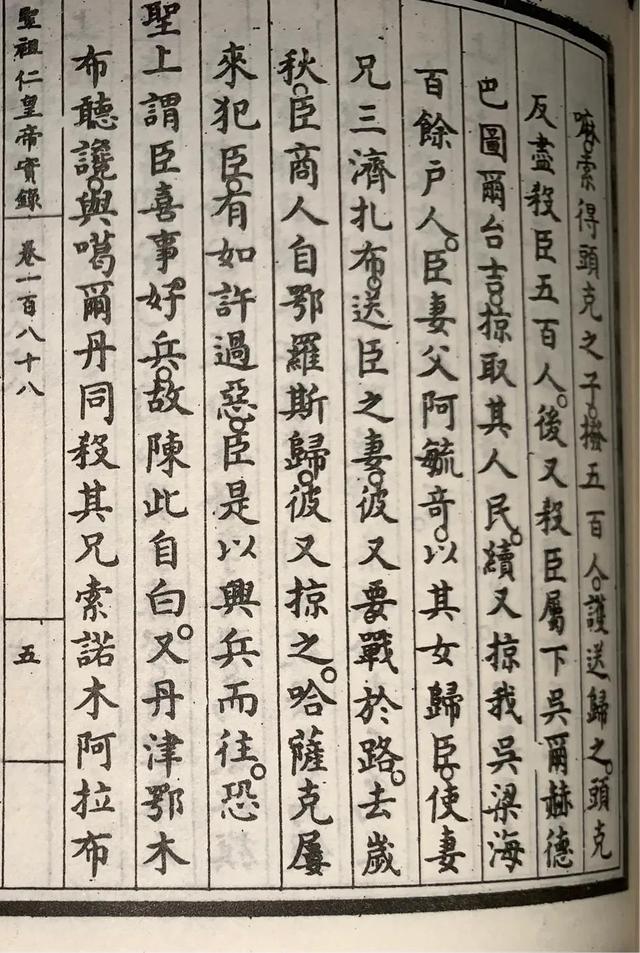 嘛索得頭克之子。撥五百人。護送歸之。頭克
反盡殺臣五百人。後又殺臣屬下吳爾赫德
巴圖爾台吉。掠取其人民。續又掠我吳梁海
百餘戶人。臣妻父阿毓奇。以其女歸臣。使妻
兄三濟扎布。送臣之妻。彼又要戰於路。去歲
秋。臣商人自鄂羅斯歸。彼又掠之。哈薩克屢
來犯臣。有如許過惡。臣是以興兵而往。恐
聖上謂臣喜事好兵。故陳此自白。又丹津鄂木
布聽讒。與噶爾丹同殺其兄索諾木阿拉布
聖祖仁皇帝實錄 卷一百八十八 五